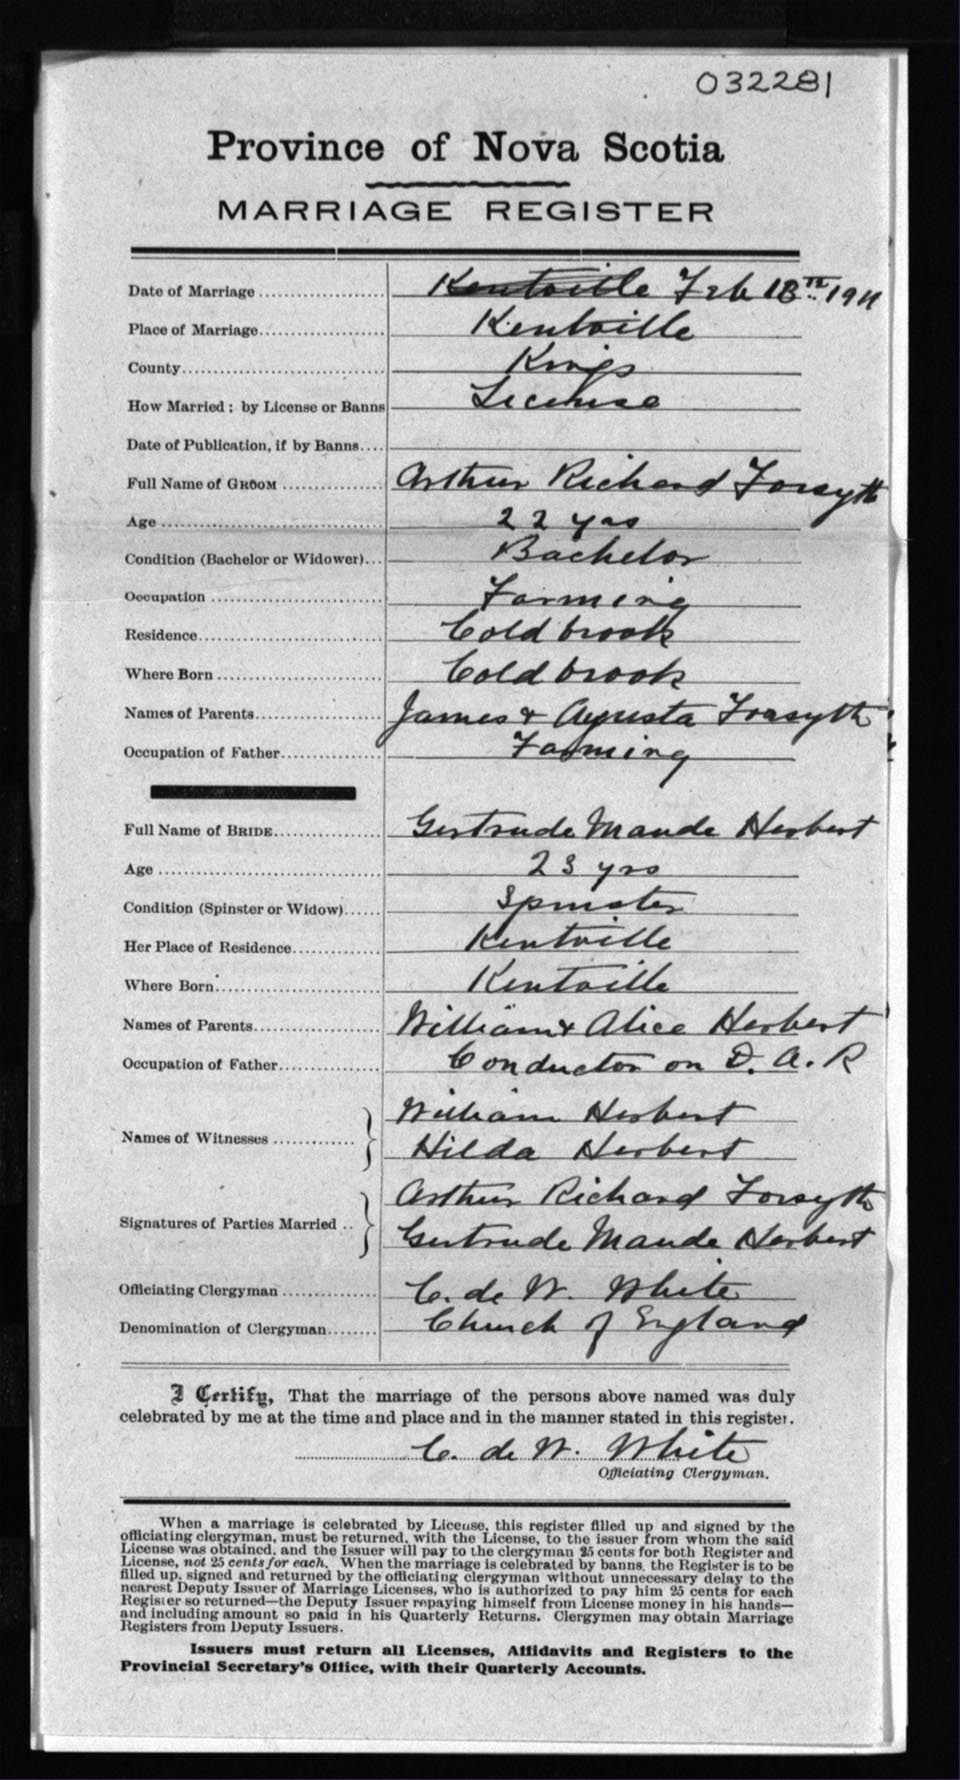 032281
Province of Nova Scotia
MARRIAGE REGISTER
Date of Marriage .................... Kentville Feb 18th 1911
Place of Marriage.................... Kentville
County.................... Kings
How Married: by License or Banns License
Date of Publication, if by Banns....
Full Name of GROOM .................... Arthur Richard Forsyth
Age .................... 22 yrs
Condition (Bachelor or Widower)... Bachelor
Occupation .................... Farming
Residence.................... Coldbrook
Where Born .................... Coldbrook
Names of Parents.................... James & Agusta Forsyth
Occupation of Father............... Farming
Full Name of BRIDE............... Gertrude Maude Herbert
Age .................... 23 yrs
Condition (Spinster or Widow)...... Spinster
Her Place of Residence............. Kentville
Where Born.................... Kentville
Names of Parents.................... William & Alice Herbert
Occupation of Father............... Conductor on D. A. R
Names of Witnesses ............. William Herbert
Hilda Herbert
Signatures of Parties Married .. Arthur Richard Forsyth
Gertrude Maude Herbert
Officiating Clergyman .............. C. de W. White
Denomination of Clergyman........ Church of England
I Certify, That the marriage of the persons above named was duly
celebrated by me at the time and place and in the manner stated in this register.
C. de W. White
Officiating Clergyman.
When a marriage is celebrated by License, this register filled up and signed by the
officiating clergyman, must be returned, with the License, to the issuer from whom the said
License was obtained, and the Issuer will pay to the clergyman 25 cents for both Register and
License, not 25 cents for each. When the marriage is celebrated by banns, the Register is to be
filled up, signed and returned by the officiating clergyman without unnecessary delay to the
nearest Deputy Issuer of Marriage Licenses, who is authorized to pay him 25 cents for each
Register so returned—the Deputy Issuer repaying himself from License money in his hands—
and including amount so paid in his Quarterly Returns. Clergymen may obtain Marriage
Registers from Deputy Issuers.
Issuers must return all Licenses, Affidavits and Registers to the
Provincial Secretary's Office, with their Quarterly Accounts.